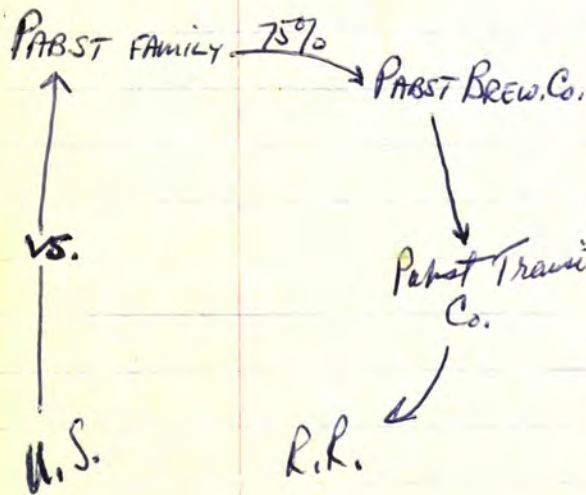 PABST FAMILY 75%
PABST BREW. Co.
VS.
Pabst Transi
Co.
U.S.
R.R.